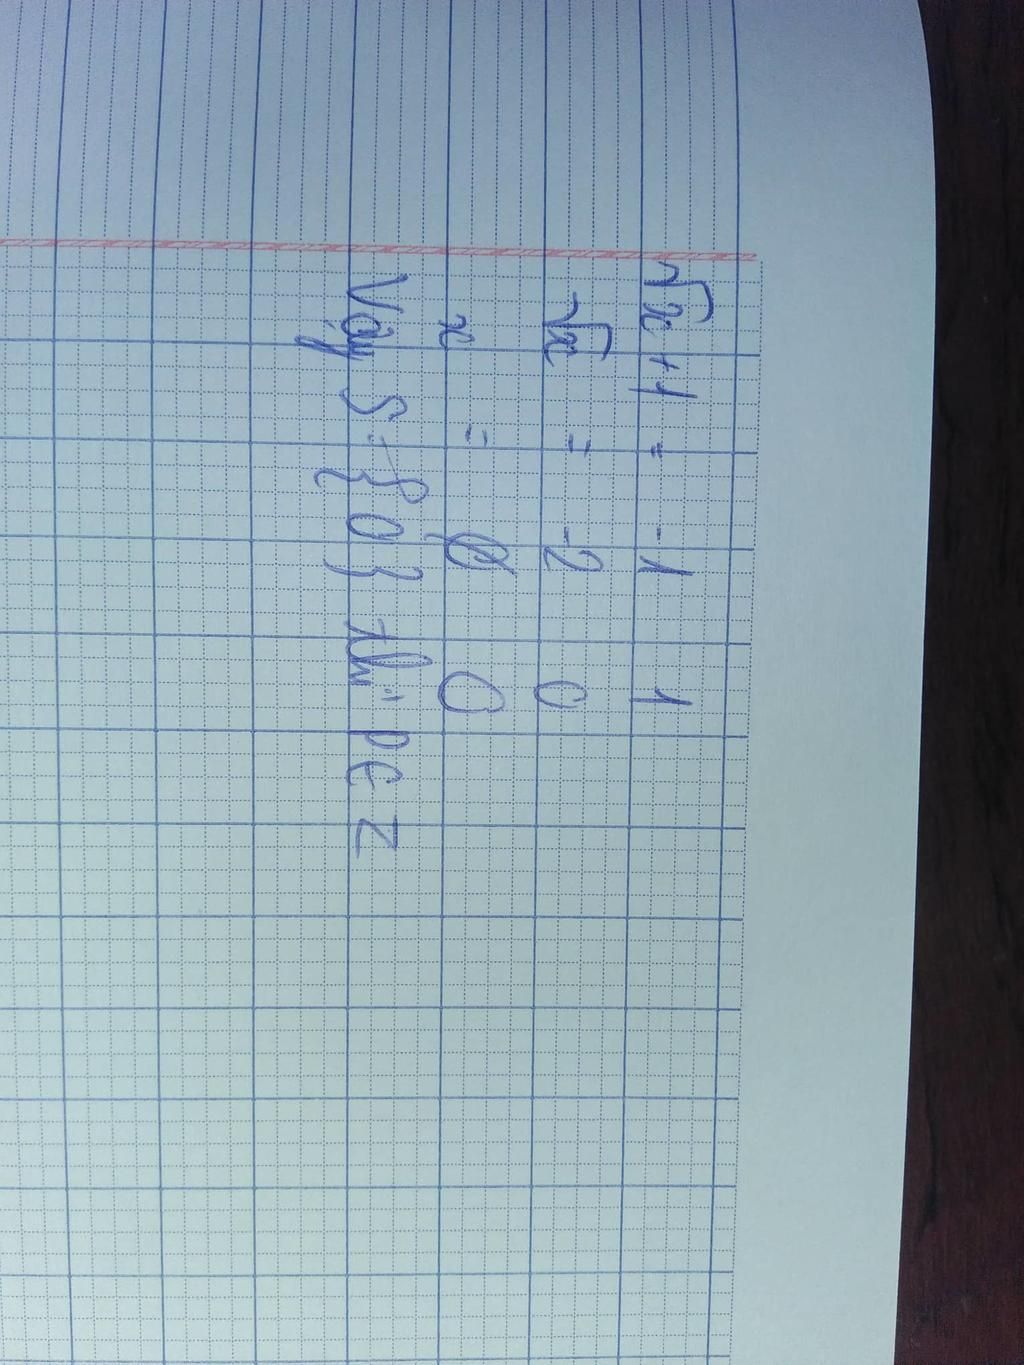 √x + 1 = -1 1
√x = -2 0
x = ∅ 0
Vậy S = {0} thì P ∈ Z